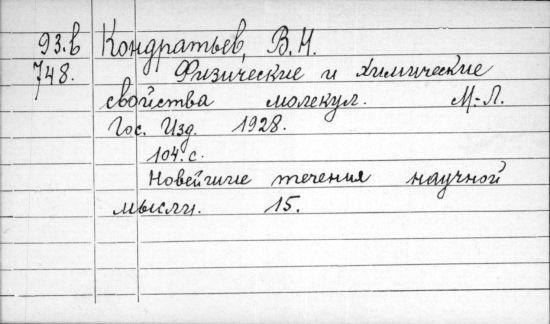 93.в Кондратьев, В.Н.
748. Физические и химические
свойства молекул. М.-Л.
Гос. Изд. 1928.
104.с.
Новейшие течения научной
мысли. 15.